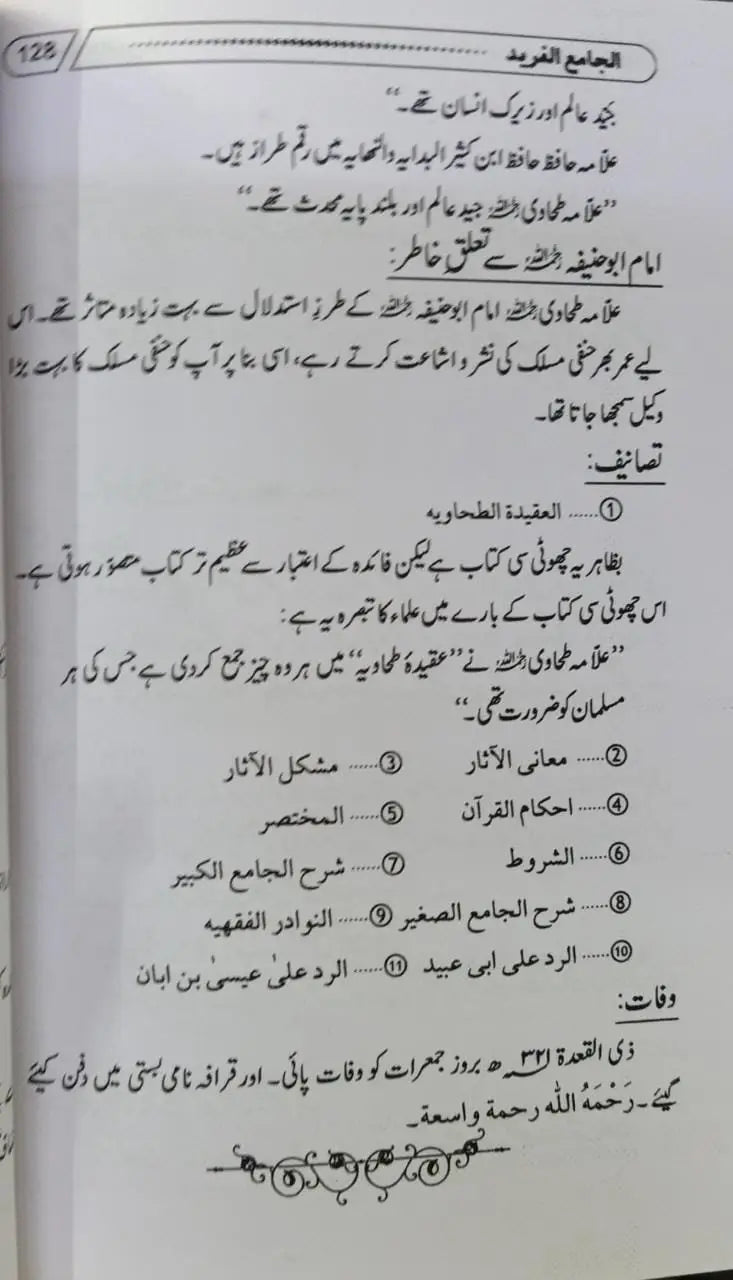 الجامع الفرید 128
جیّد عالم اور زیرک انسان تھے۔“
علاّمہ حافظ حافظ ابن کثیر البدایہ والنھایہ میں رقم طراز ہیں۔
”علاّمہ طحاوی رحمہ اللہ جید عالم اور بلند پایہ محدث تھے۔“
امام ابوحنیفہ رحمہ اللہ سے تعلقِ خاطر:
علاّمہ طحاوی رحمہ اللہ امام ابوحنیفہ رحمہ اللہ کے طرزِ استدلال سے بہت زیادہ متاثر تھے۔ اس
لیے عمر بھر حنفی مسلک کی نشر و اشاعت کرتے رہے، اسی بنا پر آپ کو حنفی مسلک کا بہت بڑا
وکیل سمجھا جاتا تھا۔
تصانیف:
①...... العقیدة الطحاویه
بظاہر یہ چھوٹی سی کتاب ہے لیکن فائدہ کے اعتبار سے عظیم تر کتاب متصوّر ہوتی ہے۔
اس چھوٹی سی کتاب کے بارے میں علماء کا تبصرہ یہ ہے:
”علاّمہ طحاوی رحمہ اللہ نے ”عقیدۂ طحاویہ“ میں ہر وہ چیز جمع کر دی ہے جس کی ہر
مسلمان کو ضرورت تھی۔“
②...... معانی الآثار ③...... مشکل الآثار
④...... احکام القرآن ⑤...... المختصر
⑥...... الشروط ⑦...... شرح الجامع الکبیر
⑧...... شرح الجامع الصغیر ⑨...... النوادر الفقهیه
⑩...... الرد علی ابی عبید ⑪...... الرد علیٰ عیسیٰ بن ابان
وفات:
ذی القعدة ۳۲۱ھ بروز جمعرات کو وفات پائی۔ اور قرافہ نامی بستی میں دفن کیئے
گیئے۔ رَحْمَهُ اللّٰه رحمة واسعة۔